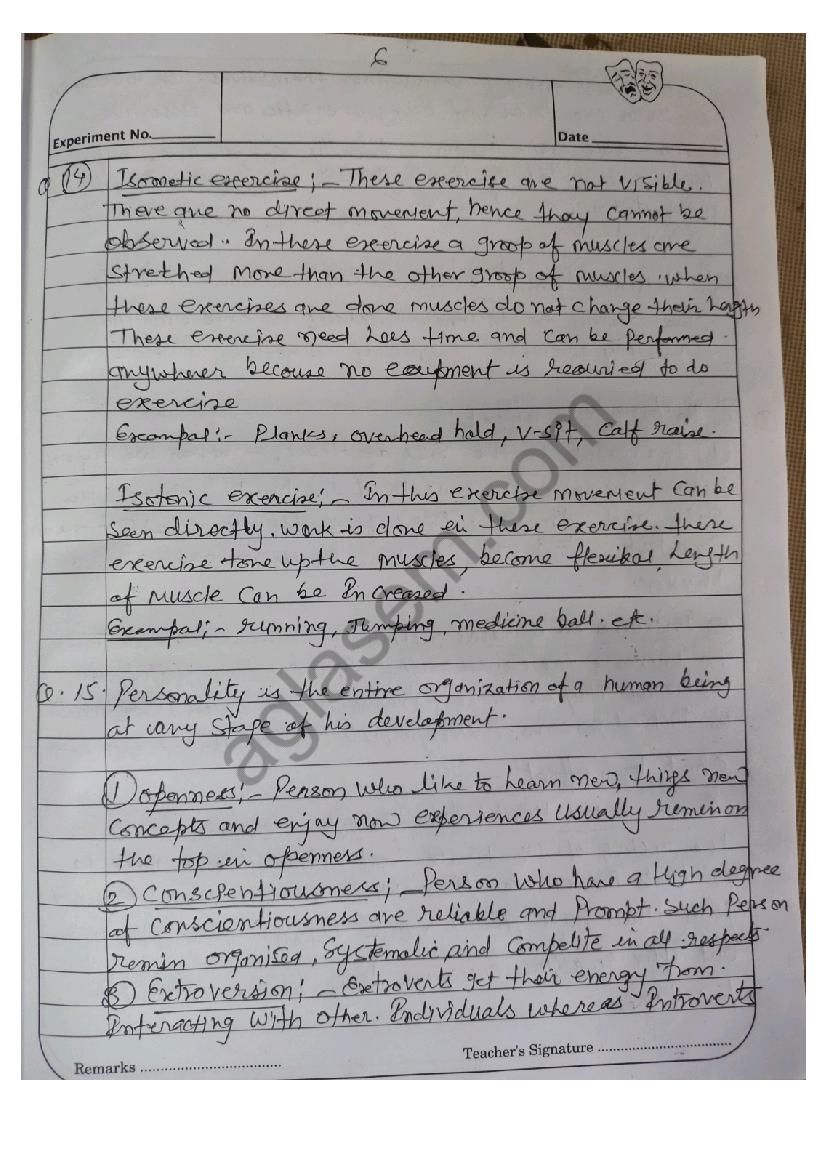 6
Experiment No.
Date
Q (14) Isometic exercise ; - These exercise are not visible.
There are no direct movement, hence thay cannot be
observed. In these exercise a groop of muscles are
strethed more than the other groop of muscles. when
these exercises are done muscles do not change their
These exercise need time and can be performed.
anywherer becouse no is to do
exercise
:- Planks, overhead hold, V-sit, Calf raise.
Isotonic exercise ; - In this exercise movement can be
seen directly. work is done in these exercise. these
exercise tone up the muscles, become length
of muscle can be Increased.
Exampal ; - running, Jumping, medicine ball. etc.
Q. 15. Personality is the entire organization of a human being
at any stage of his development.
(1) openness ; - Person who like to learn new, things new
concepts and enjoy new experiences usually reminon
the top in openness.
(2) ; - Person who have a High degree
of conscientiousness are reliable and Prompt. Such Person
remin organised, Systematic and in all respects.
(3) Extroversion ; - Extroverts get their energy from.
Interacting with other. Individuals whereas Introverts
Remarks
Teacher's Signature
aglasem.com